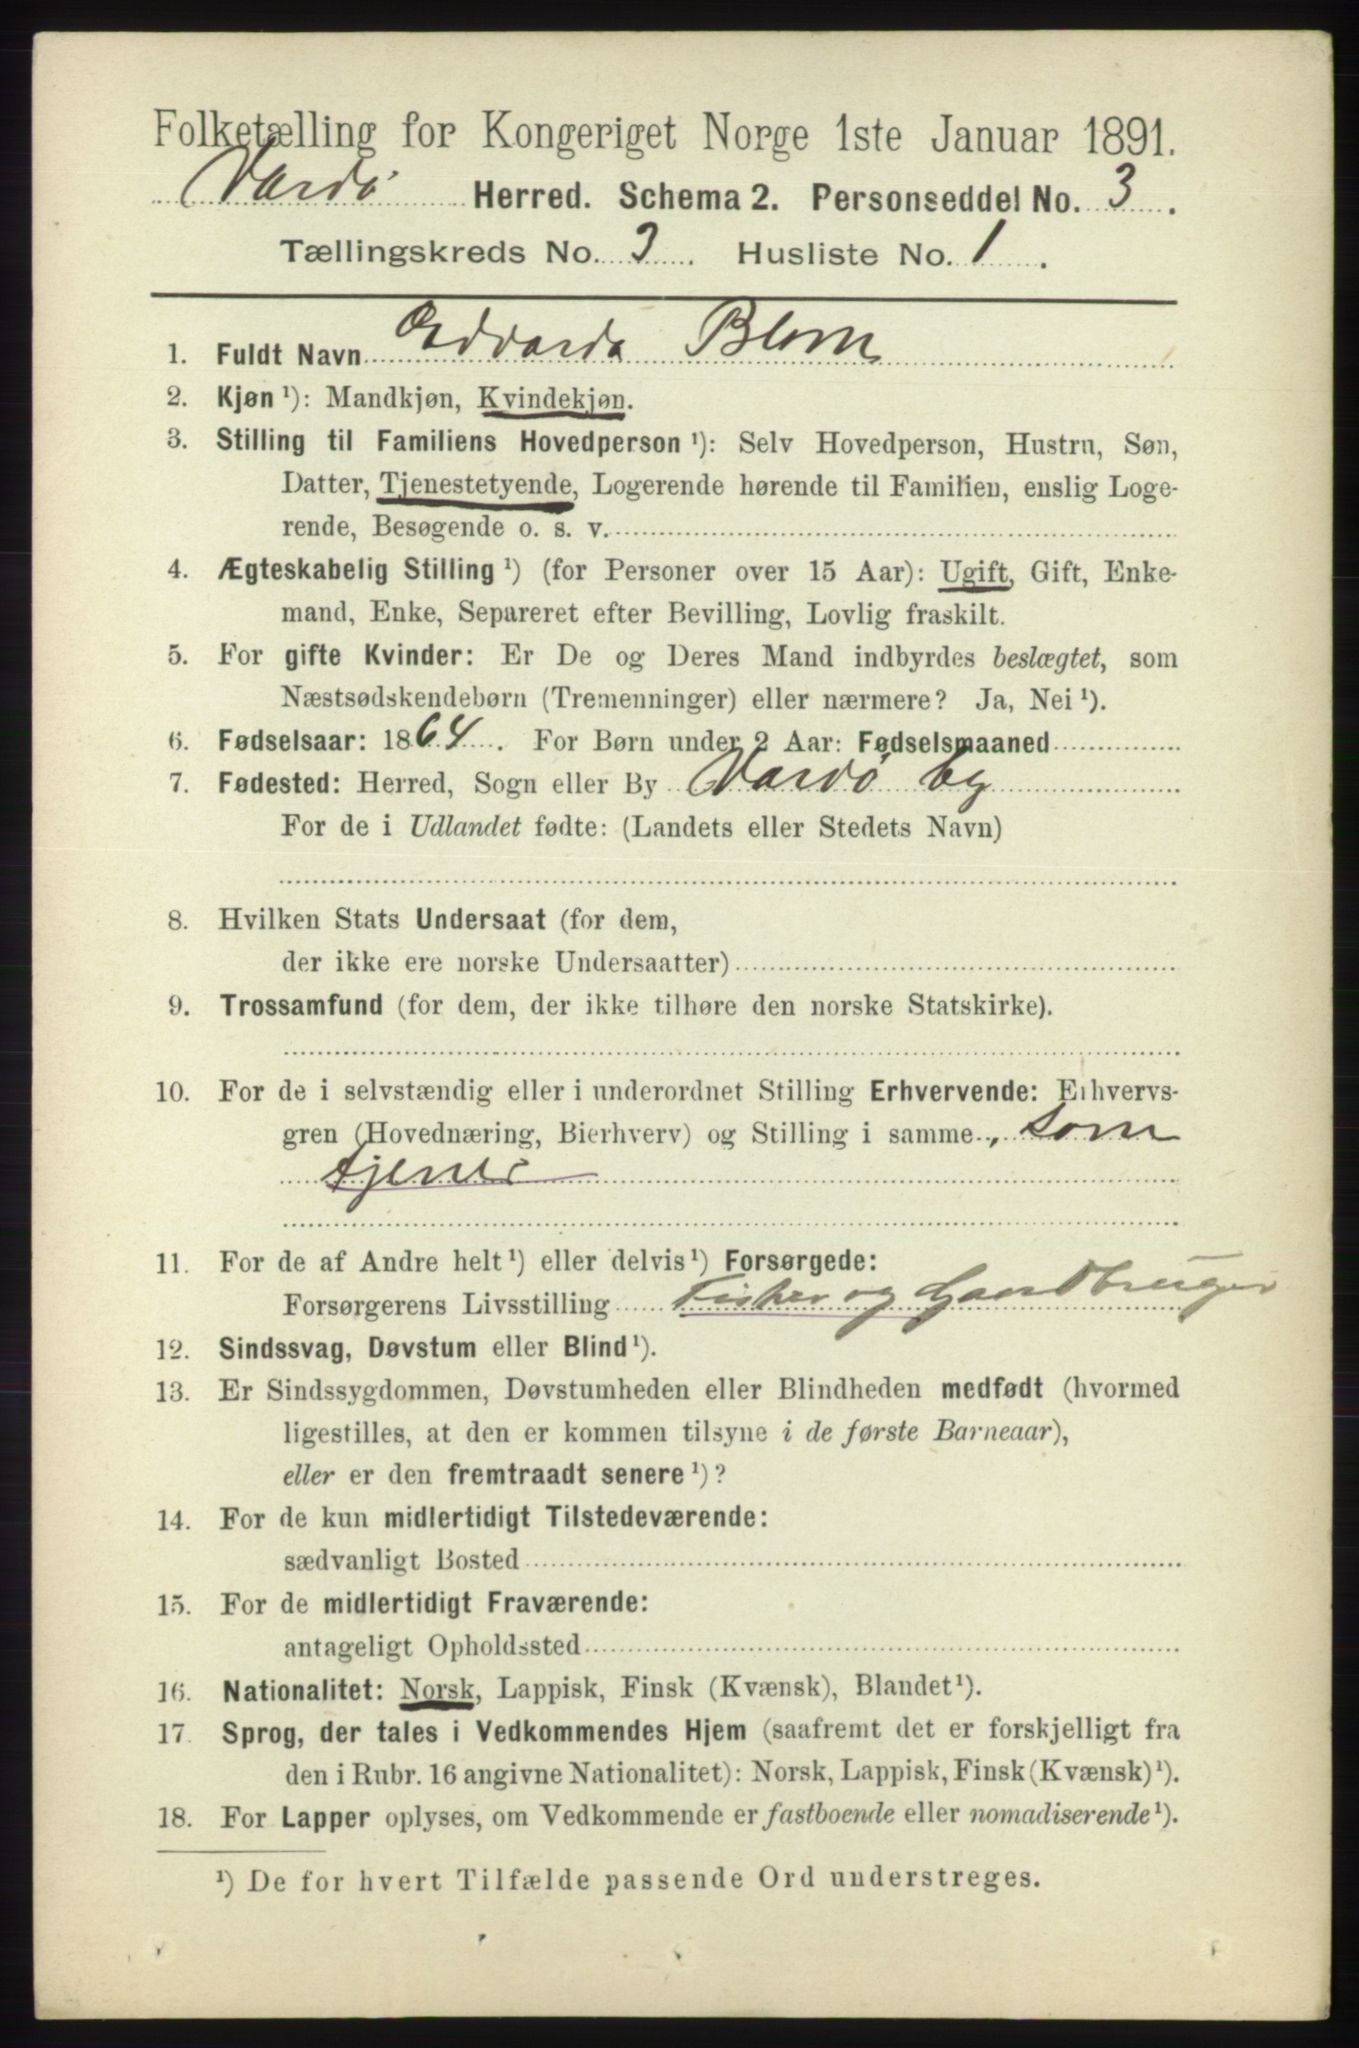 Folketælling for Kongeriget Norge 1ste Januar 1891.
Vardø Herred. Schema 2. Personseddel No. 3.
Tællingskreds No. 3. Husliste No. 1.
1. Fuldt Navn Edvarda Blom
2. Kjøn ¹): Mandkjøn, Kvindekjøn.
3. Stilling til Familiens Hovedperson ¹): Selv Hovedperson, Hustru, Søn,
Datter, Tjenestetyende, Logerende hørende til Familien, enslig Loge-
rende, Besøgende o. s. v.
4. Ægteskabelig Stilling ¹) (for Personer over 15 Aar): Ugift, Gift, Enke-
mand, Enke, Separeret efter Bevilling, Lovlig fraskilt.
5. For gifte Kvinder: Er De og Deres Mand indbyrdes beslægtet, som
Næstsødskendebørn (Tremenninger) eller nærmere? Ja, Nei ¹).
6. Fødselsaar: 1864. For Børn under 2 Aar: Fødselsmaaned
7. Fødested: Herred, Sogn eller By Vardø by
For de i Udlandet fødte: (Landets eller Stedets Navn)
8. Hvilken Stats Undersaat (for dem,
der ikke ere norske Undersaatter)
9. Trossamfund (for dem, der ikke tilhøre den norske Statskirke).
10. For de i selvstændig eller i underordnet Stilling Erhvervende: Erhvervs-
gren (Hovednæring, Bierhverv) og Stilling i samme, som
tjener
11. For de af Andre helt ¹) eller delvis ¹) Forsørgede:
Forsørgerens Livsstilling Fisker og Gaardbruger
12. Sindssvag, Døvstum eller Blind ¹).
13. Er Sindssygdommen, Døvstumheden eller Blindheden medfødt (hvormed
ligestilles, at den er kommen tilsyne i de første Barneaar),
eller er den fremtraadt senere ¹)?
14. For de kun midlertidigt Tilstedeværende:
sædvanligt Bosted
15. For de midlertidigt Fraværende:
antageligt Opholdssted
16. Nationalitet: Norsk, Lappisk, Finsk (Kvænsk), Blandet ¹).
17. Sprog, der tales i Vedkommendes Hjem (saafremt det er forskjelligt fra
den i Rubr. 16 angivne Nationalitet): Norsk, Lappisk, Finsk (Kvænsk) ¹).
18. For Lapper oplyses, om Vedkommende er fastboende eller nomadiserende ¹).
¹) De for hvert Tilfælde passende Ord understreges.